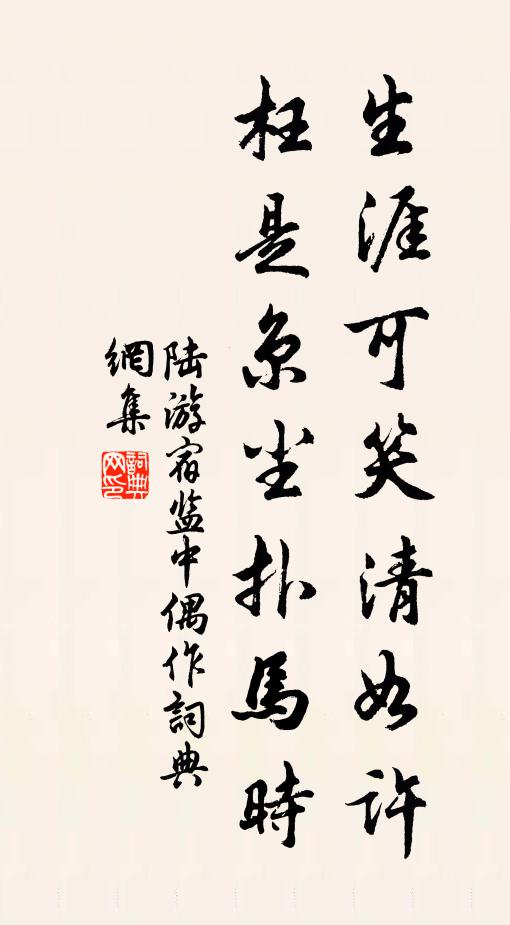 生涯可笑清如许
枉是京尘扑馬時
陆游宿监中偶作詞典
網集
詞典
网印